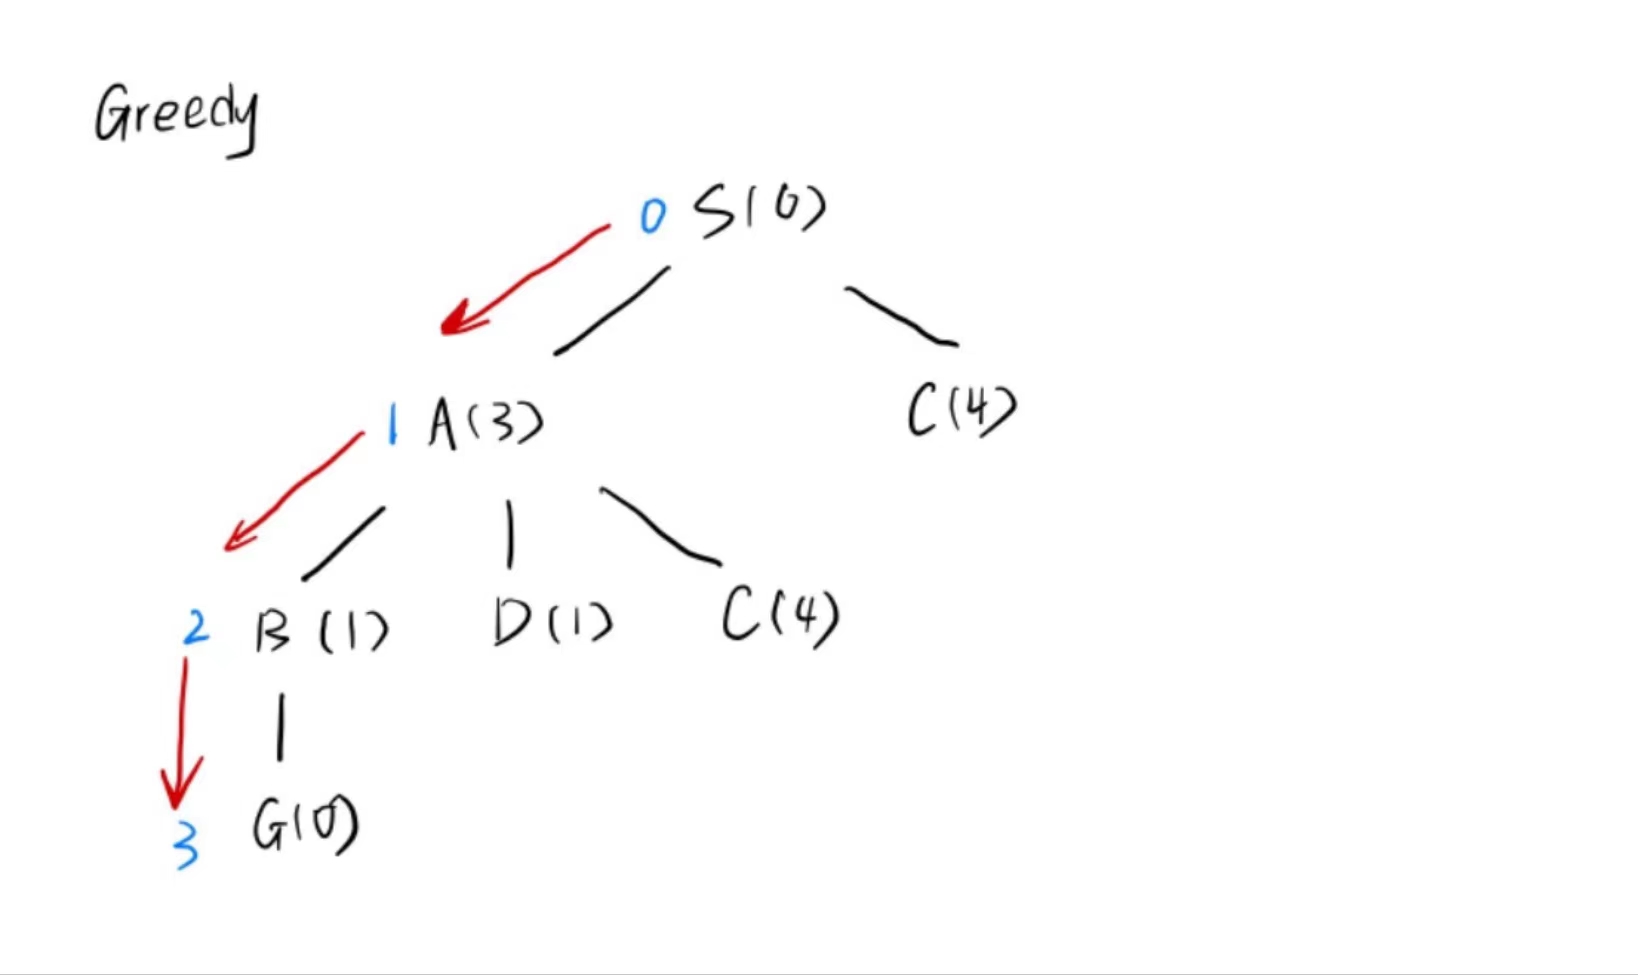 Greedy
0 S(0)
1 A(3) C(4)
2 B(1) D(1) C(4)
3 G(0)